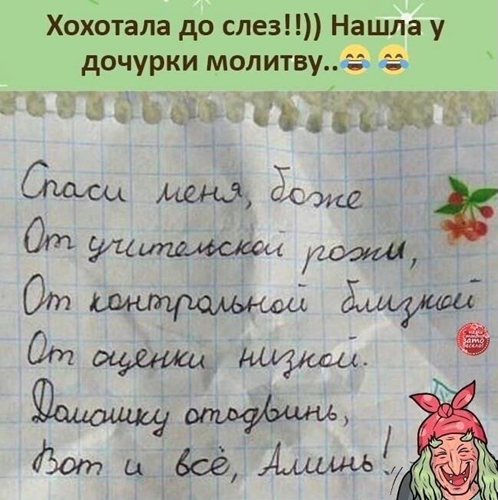 Хохотала до слез!!)) Нашла у
дочурки молитву..😂😂
Спаси меня, боже
От учительской рожи,
От контрольной близкой
От оценки низкой.
Домашку отодвинь,
Вот и всё, Аминь!